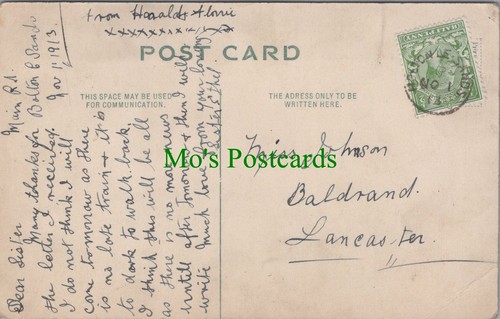 from Harold & Florrie
xxxxxxxxxxx
POST CARD
THIS SPACE MAY BE USED
FOR COMMUNICATION.
THE ADRESS ONLY TO BE
WRITTEN HERE.
Main Rd.
Bolton le Sands
Nov 1, 1913.
Dear Sister
Many thanks for
the letter I received.
I do not think I will
come tomorrow as there
is no late train & it is
to dark to walk back,
I think this will be all
as there is no more news
untill after Tomorrow & then I will
write Much love from your loving
Sister Ethel
Miss Johnson
Baldrand,
Lancaster.
Mo's Postcards